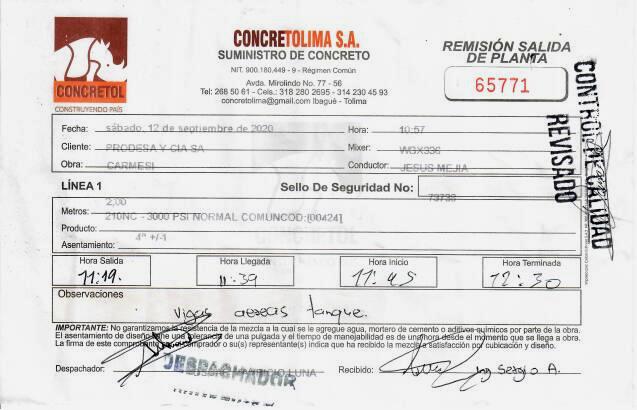 CONCRETOL
CONSTRUYENDO PAÍS
CONCRETOLIMA S.A.
SUMINISTRO DE CONCRETO
NIT. 900.180.449 - 9 - Régimen Común
Avda. Mirolindo No. 77 - 56
Tel: 268 50 61 - Cels.: 318 280 2695 - 314 230 45 93
concretolima@gmail.com Ibagué - Tolima
REMISIÓN SALIDA
DE PLANTA
65771
CONTROL DE CALIDAD
REVISADO
Fecha: sábado, 12 de septiembre de 2020 Hora: 10:57
Cliente: PRODESA Y CIA SA Mixer: WGX336
Obra: CARMESI Conductor: JESUS MEJIA
LÍNEA 1 Sello De Seguridad No: 73738
Metros: 2,00
Producto: 210NC - 3000 PSI NORMAL COMUNCOD:[00424]
Asentamiento: 4" +/-1
Hora Salida Hora Llegada Hora Inicio Hora Terminada
11:19. 11:39 11:45 12:30
Observaciones
vigas aereas tanque.
IMPORTANTE: No garantizamos la resistencia de la mezcla a la cual se le agregue agua, mortero de cemento o aditivos químicos por parte de la obra.
El asentamiento de diseño tiene una tolerancia de una pulgada y el tiempo de manejabilidad es de una hora desde el momento que se llega a obra.
La firma de este comprobante por el comprador o su(s) representante(s) indica que ha recibido la mezcla a satisfacción por cubicación y diseño.
Despachador: LUNA Recibido: Ing Sergio A.
DESPACHADOR